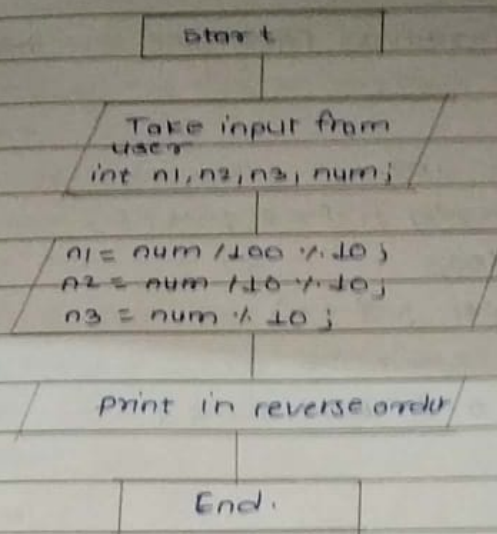 Start
Take input from
user
int n1, n2, n3, num;
n1 = num /100 % 10;
n2 = num /10 % 10;
n3 = num % 10;
print in reverse order
End.